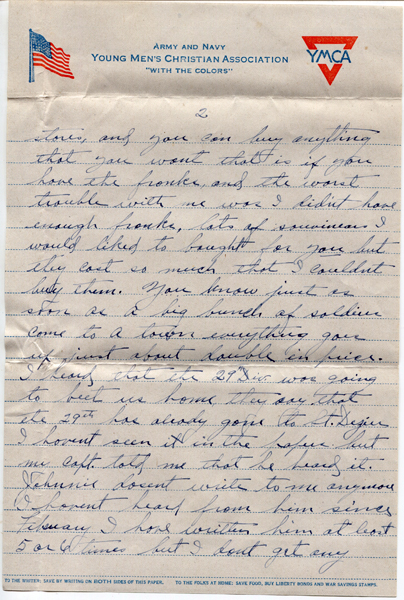 ARMY AND NAVY
YOUNG MEN'S CHRISTIAN ASSOCIATION
"WITH THE COLORS"
YMCA
2
stores, and you can buy anything
that you want that is if you
have the franks, and the worst
trouble with me was I didn't have
enough franks, lots of souvenirs I
would liked to bought for you but
they cost so much that I couldn't
buy them. You know just as
soon as a big bunch of soldier
come to a town everything goes
up just about double in price.
I heard that the 29 Div. was going
to beat us home, they say that
the 29th has already gone to St.
I havent seen it in the paper but
my Capt. told me that he heard it.
Johnnie doesnt write to me anymore
I havent heard from him since
I have written him at least
5 or 6 times but I dont get any
TO THE WRITER: SAVE BY WRITING ON BOTH SIDES OF THIS PAPER. TO THE FOLKS AT HOME: SAVE FOOD, BUY LIBERTY BONDS AND WAR SAVINGS STAMPS.